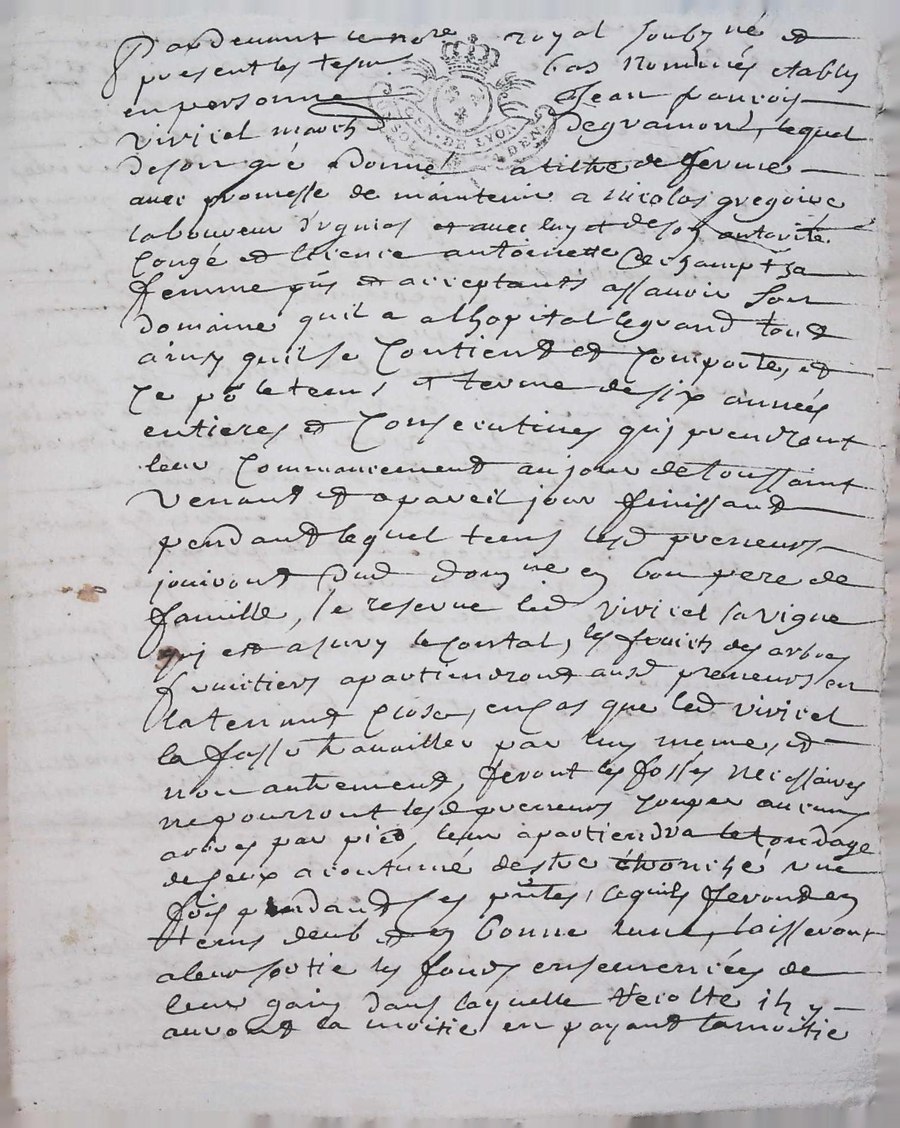 Pardevant le no.re royal soubz.né et
present les tesm bas Nommés etably
en personne Jean francois
vivicel march.d degramon, lequel
de son gré a donné a tiltre de ferme
avec promesse de maintenir a nicolas gregoire
laboureur et avec luy et de son autorité
Congé et licence antoinette Dechampt sa
femme p.ns et acceptants assavoir son
domaine quil a a lhopital legrand tout
ainsy quil se Contient et Comporte, et
Ce p.r le tems et terme de six années
entieres et Consecutives quy prendront
leur Commancement au jour de toussaint
venant et a pareil jour finissant
pendant lequel tems lesd preneurs
jouiront dud dom.ne en bon pere de
famille, se reserve led vivicel sa vigne
quy est a sury le Contal, les fruits des arbres
fruitiers apartiendront ausd preneurs en
la tenant Close, en Cas que led vivicel
la fasse travailler par luy meme, et
non autrement, feront les fosses necessaires
ne pourront lesd preneurs Couper aucuns
arbres par pied, leur apartiendra le tondage
de Ceux acoutumé destre etronché une
fois pendant Ces p.ntes, lequils feront en
tems deub et en bonne lune, laisseront
a leur sortie les fonds ensemencées de
leur gain dans laquelle recolte ils y
auront la moitié en payant la moitié